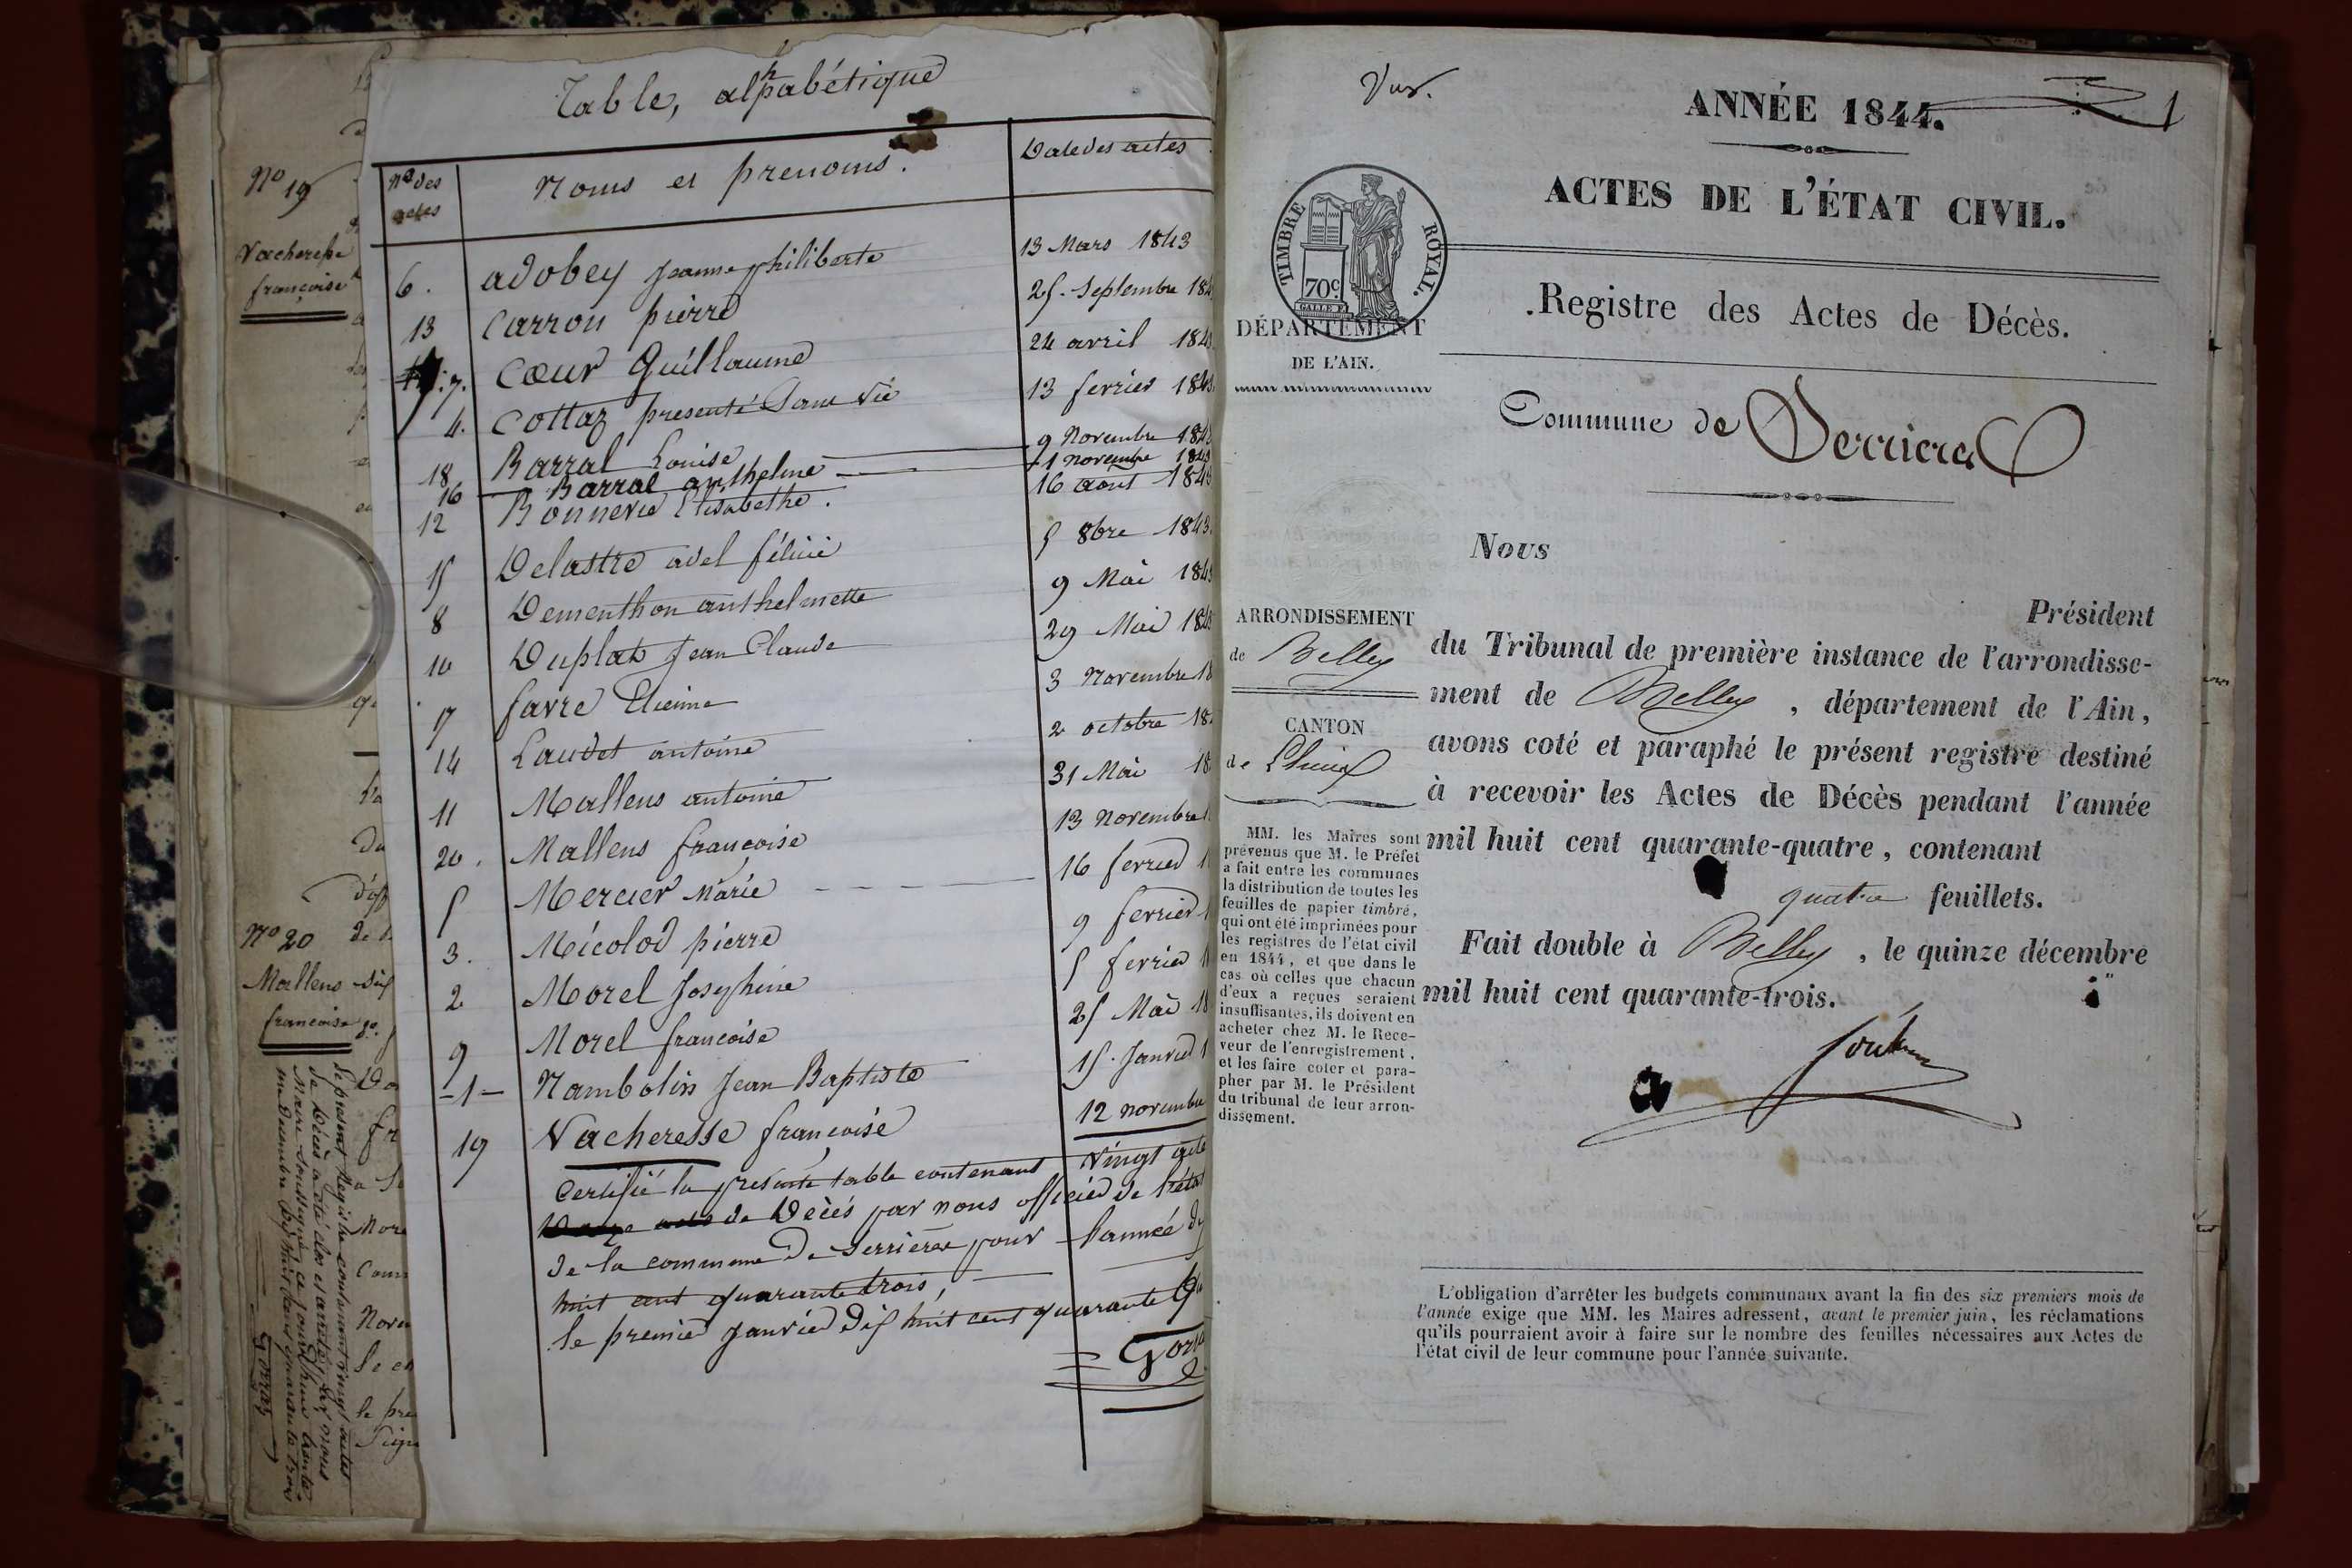 Table, alphabétique
Nos des actes
Noms et prenoms.
Date des actes
6. adobey jeanne philiberte 13 Mars 1843
13 Carron pierre 25. Septembre 184
7. Cœur Guillaume 24 avril 184
4. Cottaz presenté Sans Vie 13 ferrier 184
18 Barral Louise 9 Novembre 184
16 Barral anthelme 1 novembre 1843
12 Bonnerie Elisabethe. 16 aout 184
15 Delastre adel félicie 5 8bre 1843.
8 Dementhon anthelmette 9 Mai 184
10 Duplat Jean Claude 29 Mai 184
17 favre Etienne 3 Novembre 18
14 Laudet antoine 2 octobre 18
11 Mallens antoine 31 Mai 18
20. Mallens francoise 13 novembre 1
5 Mercier Marie 16 ferrier 1
3. Micolod pierre 9 ferrier 1
2 Morel Josephine 5 ferrier 1
9 Morel francoise 25 Mai 18
-1- Nambotin Jean Baptiste 15. Janvier 1
19 Vacheresse francoise 12 novembre
Certifié la presente table contenant Vingt acte
de Décès par nous officier de l'état
de la commune de Serrières pour l'année di
huit cent quarante trois,
le premier janvier dix huit cent quarante qu
Gorra
No 19
Vacheresse
francoise
No 20
Mallens
francoise
Le present Registre contenant vingt actes
de Décès a été clos et arrêté par nous
Maire soussigné ce jourd'hui trente
un Decembre dix huit cent quarante trois
Gorraz
Vu.
ANNÉE 1844.
1
ACTES DE L'ÉTAT CIVIL.
TIMBRE ROYAL.
70c
Registre des Actes de Décès.
DÉPARTEMENT
DE L'AIN.
Commune de Serrieres
Nous
Président
ARRONDISSEMENT
de Belley
du Tribunal de première instance de l'arrondisse-
ment de Belley, département de l'Ain,
CANTON
de Lhuis
avons coté et paraphé le présent registre destiné
à recevoir les Actes de Décès pendant l'année
mil huit cent quarante-quatre, contenant
quatre feuillets.
Fait double à Belley, le quinze décembre
mil huit cent quarante-trois.
MM. les Maires sont
prévenus que M. le Préfet
a fait entre les communes
la distribution de toutes les
feuilles de papier timbré,
qui ont été imprimées pour
les registres de l'état civil
en 1844, et que dans le
cas où celles que chacun
d'eux a reçues seraient
insuffisantes, ils doivent en
acheter chez M. le Rece-
veur de l'enregistrement,
et les faire coter et para-
pher par M. le Président
du tribunal de leur arron-
dissement.
L'obligation d'arrêter les budgets communaux avant la fin des six premiers mois de
l'année exige que MM. les Maires adressent, avant le premier juin, les réclamations
qu'ils pourraient avoir à faire sur le nombre des feuilles nécessaires aux Actes de
l'état civil de leur commune pour l'année suivante.